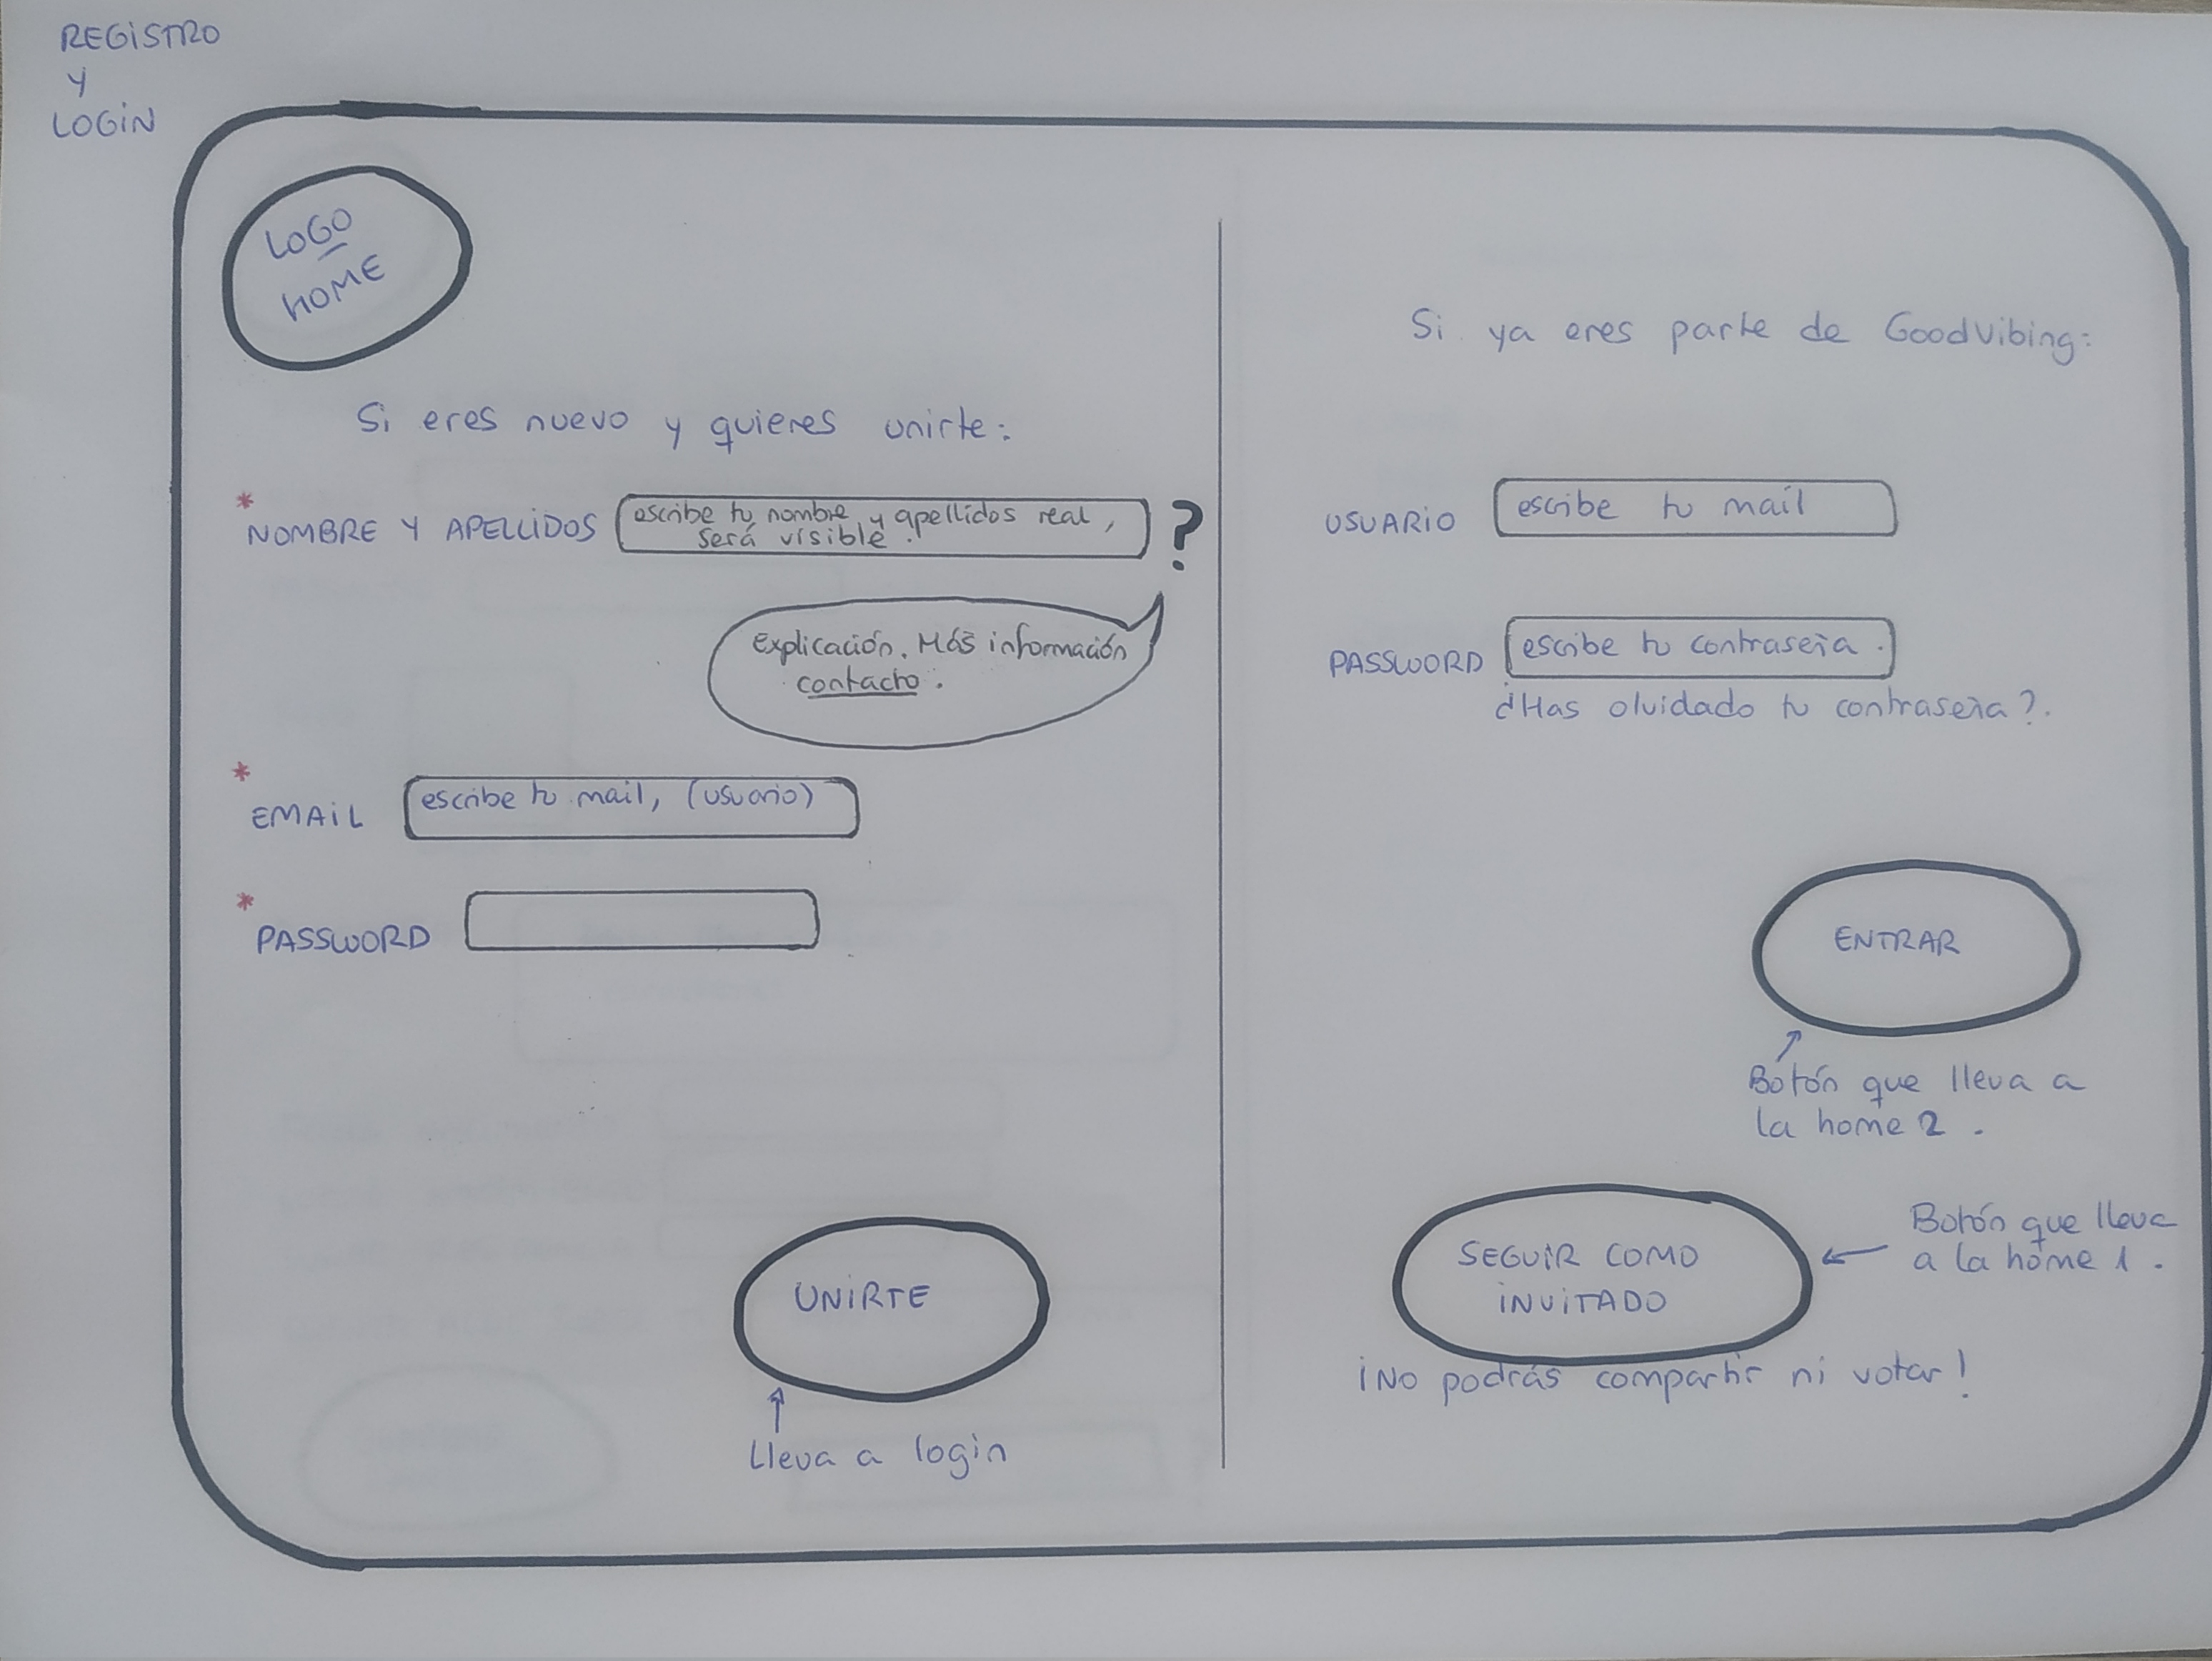 REGISTRO
Y
LOGIN
LOGO
HOME
Si eres nuevo y quieres unirte:
*
NOMBRE Y APELLIDOS
escribe tu nombre y apellidos real,
será visible.
?
Explicación. Más información
contacto.
*
EMAIL
escribe tu mail, (usuario)
*
PASSWORD
UNIRTE
Lleva a login
Si ya eres parte de Goodvibing:
USUARIO
escribe tu mail
PASSWORD
escribe tu contraseña.
¿Has olvidado tu contraseña?.
ENTRAR
Botón que lleva a
la home 2.
SEGUIR COMO
INVITADO
Botón que lleva
a la home 1.
¡No podrás compartir ni votar!